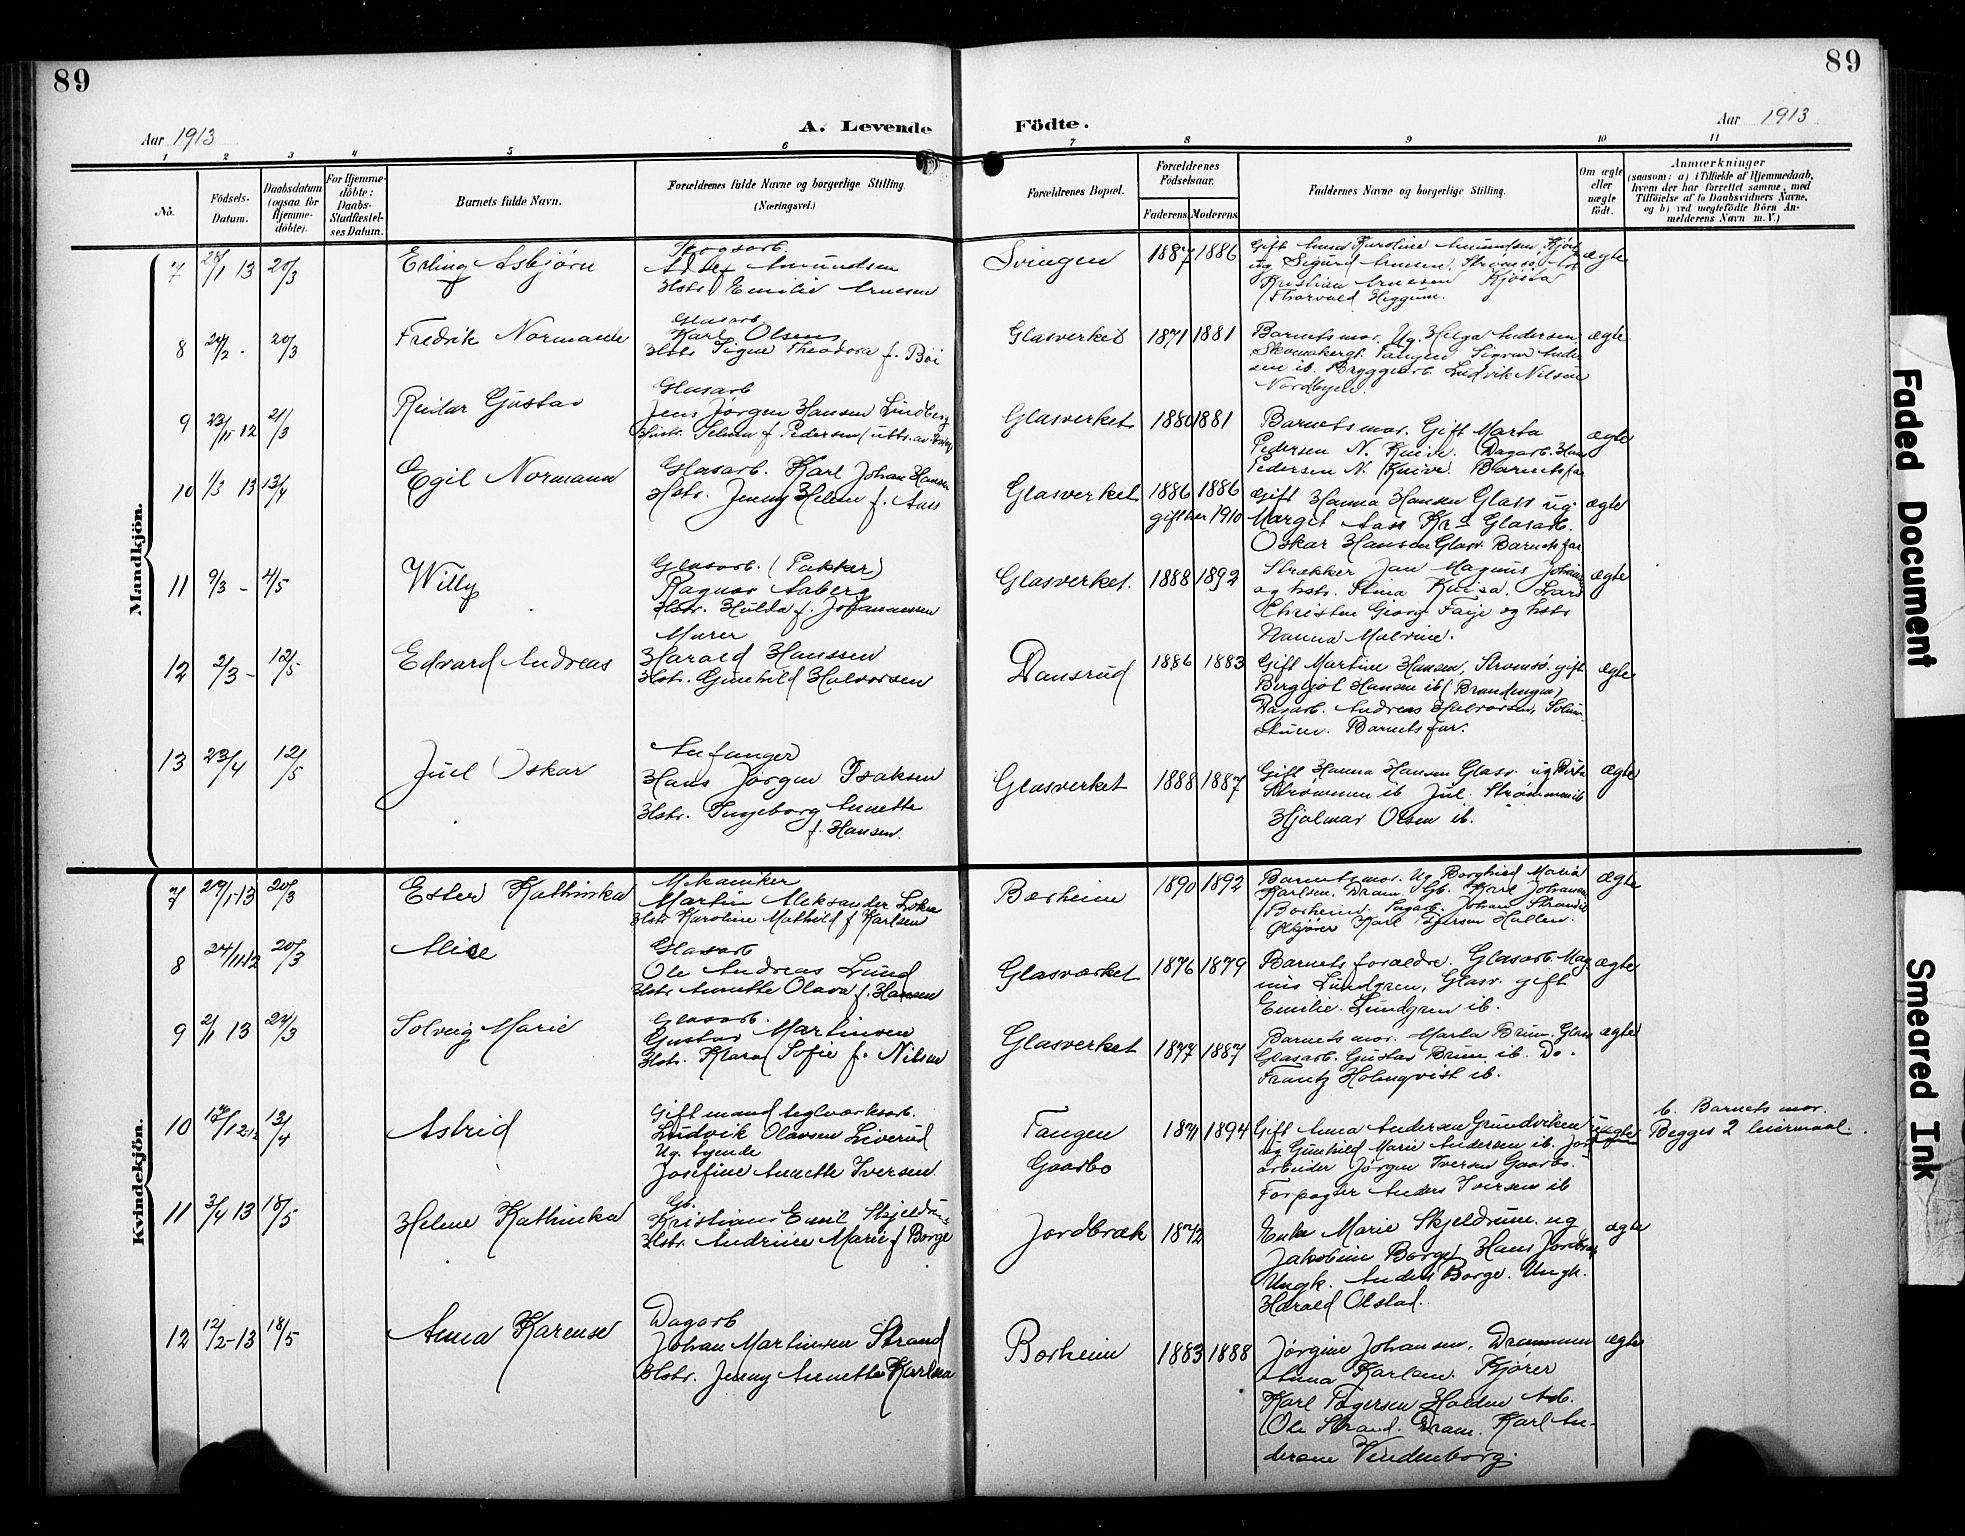 89
89
Aar 1913
A. Levende
Födte.
Aar 1913
1 2 3 4 5 6 7 8 9 10 11
No.
Födsels-
Datum.
Daabsdatum
(ogsaa for
Hjemme-
döbte).
For Hjemme-
döbte:
Daabs-
Stadfæstel-
ses Datum.
Barnets fulde Navn.
Forældrenes fulde Navne og borgerlige Stilling.
(Næringsvei.)
Forældrenes Bopæl.
Forældrenes
Födselsaar.
Faderens.
Moderens.
Faddernes Navne og borgerlige Stilling.
Om ægte
eller
uægte
födt.
Anmærkninger
(saasom: a) i Tilfælde af Hjemmedaab,
hvem der har forrettet samme, med
Tilföielse af to Daabsvidners Navne,
og b) ved uægtefödte Börn An-
melderens Navn m. V.)
Mandkjön.
7 1 13 20/3
Erling Asbjørn
Adolf Amundsen
Hstr. Emilie Arnesen
Svingen
1887 1886
Gift Anna Karoline Amundsen
og Sigurd Arnesen, Strømsø
Kristian Arnesen Kjøsta
Thorvald Heggum.
ægte
8 24/2 - 20/3
Fredrik Normann
Glasarb.
Karl Olsen
Hstr. Signe Theodora f. Bøi
Glasverket
1871 1881
Barnets mor. Ug. Helga Andersen
Tangen Sigrun Ander
sen ib. Bryggearb. Ludvik Nilsen
Nordbyen.
ægte
9 23/11-12 21/3
Reidar Gustav
Glasarb
Jens Jørgen Hansen Lindberg
Hustr. Selma f. Pedersen
Glasverket
1880 1881
Barnets mor. Gift Marta
Pedersen N. Knive. Dagarb. Hans
Pedersen N. Knive. Barnets far
ægte
10 1/3 13 13/4
Egil Normann
Glasarb. Karl Johan Hansen
Hstr. Jenny Helene f. Aas
Glasverket
1886 1886
gift her 1910
Gift Hanna Hansen Glasv. ug.
Margit Aass Kra Glasarb.
Oskar Hansen Glasv. Barnets far
ægte
11 9/3 - 4/5
Willy
Glasarb. (Pakker)
Ragnar Aaberg
Hstr. Hulda f. Johannessen
Glasverket.
1888 1892
Strækker Jan Magnus
og hstr. Stina Kaisa.
Christen Georg Faye og hstr
Nanna Malvine.
ægte
12 2/3 - 12/5
Edvard Andreas
Murer
Harald Hanssen
Hstr. Gunhild Halvorsen
Dansrud
1886 1883
Gift Martine Hansen, Strømsø. gift
Bergljot Hansen ib (Brandengen)
Dagarb. Andreas Halvorsen,
Barnets far.
ægte
13 23/4 12/5
Juel Oskar
Anfanger
Hans Jørgen Isaksen
Hstr. Ingeborg Annette
f. Hansen.
Glasverket
1888 1887
Gift Hanna Hansen Glasv. ug
Strømmen ib Jul. Strømmen ib
Hjalmar Olsen ib.
ægte
Kvindekjön.
7 29/1-13 20/3
Ester Kathinka
Mekaniker
Martin Aleksander
Hstr Karoline Mathild f Karlsen
Børheim
1890 1892
Barnets mor. Ug Borghild Maria
Karlsen. Dram. Gb. Karl Johansen
Børheim. Johan Strand
Ølkjører Karl Hallen.
ægte
8 24/11-12 20/3
Alice
Glasarb
Ole Andreas Lund
Hstr Annette Olava f. Hansen
Glasværket
1876 1879
Barnets forældre. Glasarb. Mag
nus Lundgren, Glasv. gift
Emilie Lundgren ib.
ægte
9 2/1 13 24/3
Solveig Marie
Glasarb.
Gustav Martinsen
Hstr. Klara Sofie f. Nilsen
Glasverket
1877 1887
Barnets mor. Marta Bruun, Glasv
Glasarb. Gustav Bruun ib. Do.
Frantz Holmqvist ib.
ægte
10 /12 12 13/4
Astrid
Gift mand teglværksarb.
Ludvik Olavsen Liverud
Ug. tyende
Josefine Annette Iversen
Tangen
Gaarbo
1871 1894
Gift Anna Andersen Grundviken
ug Gunhild Marie Andersen ib.
arbeider Jørgen Iversen Gaarbo.
Forpagter Anders Iversen ib
uægte
b. Barnets mor.
Begges 2 leiermaal.
11 3/4 13 18/5
Helene Kathinka
Gb.
Kristian Emil Skjeldrum
Hstr. Andrine Marie f Borge
Jordbræk
1872
Enke Marie Skjeldrum. ug
Jakobine Borge Hans Jordbræk
Ungk. Anders Borge. Ungk.
Harald Olstad.
ægte
12 12/2-13 18/5
Anna Karense
Dagarb
Johan Martinsen Strand
Hstr. Jenny Annette Karlsen
Børheim
1883 1888
Jørgine Johansen, Drammen
Anna Karlsen. Kjører
Karl Holden Arb.
Ole Strand. Dram. Karl An-
dersen Vindenborg.
ægte
Faded Document
Smeared Ink